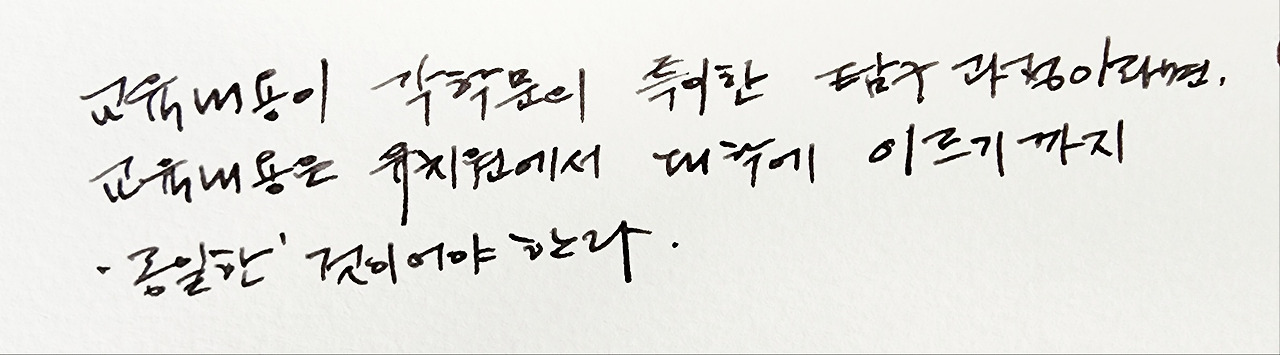 교육내용이 각학문의 특이한 탐구 과정이라면,
교육내용은 유치원에서 대학에 이르기까지
'동일한' 것이어야 한다.